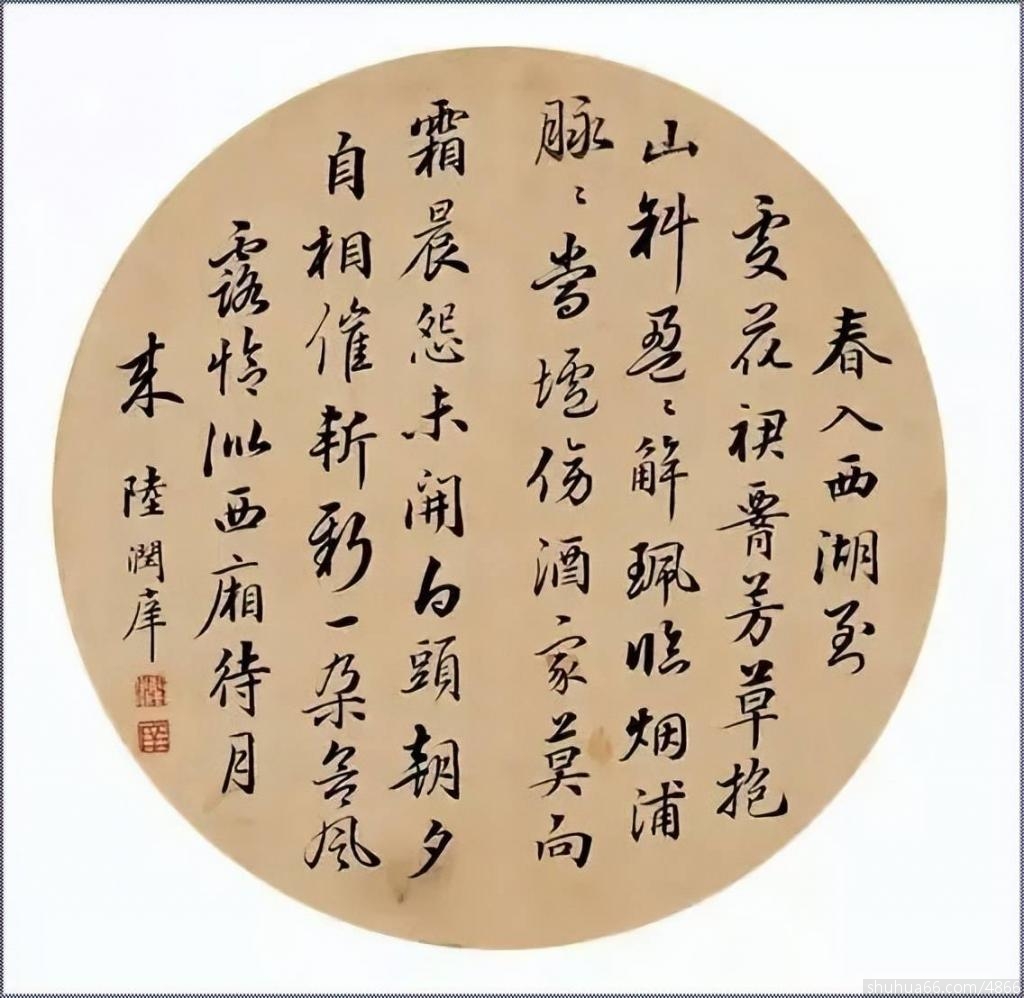 春入西湖到
處花裙腰芳草抱
山斜盈〻解珮臨烟浦
脉〻當壚傍酒家莫向
霜晨怨未開白頭朝夕
自相催斬新一朵含風
露恰似西廂待月
來 陸潤庠
shuhua66.com/4866